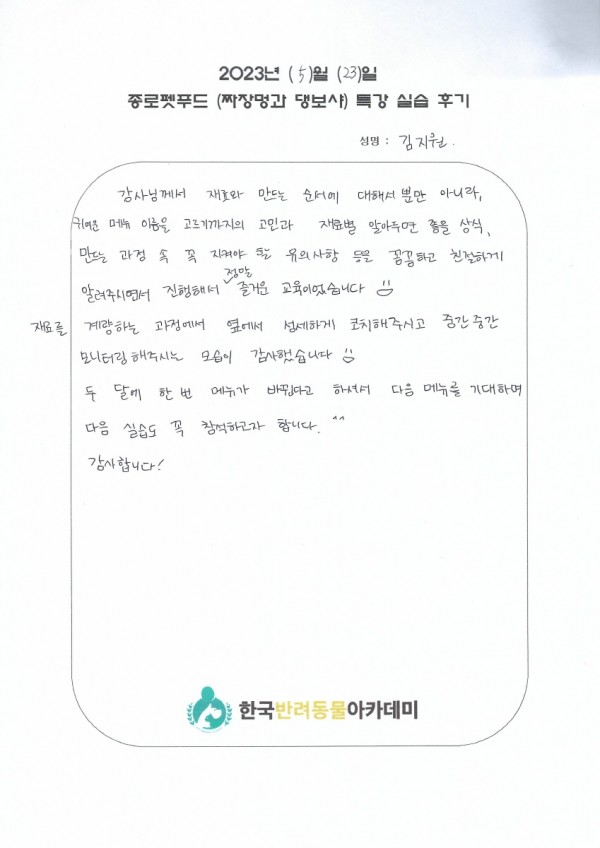 2023년 (5)월 (23)일
종로펫푸드 (짜장멍과 댕보샤) 특강 실습 후기
성명 : 김지원
강사님께서 재료와 만드는 순서에 대해서 뿐만 아니라,
귀여운 메뉴 이름을 고르기까지의 고민과 재료별 알아두면 좋을 상식,
만드는 과정 속 꼭 지켜야 할 유의사항 등을 꼼꼼하고 친절하게
알려주시면서 진행해서 정말 즐거운 교육이었습니다
재료를 계량하는 과정에서 옆에서 섬세하게 코치해주시고 중간중간
모니터링 해주시는 모습이 감사했습니다
두 달에 한 번 메뉴가 바뀐다고 하셔서 다음 메뉴를 기대하며
다음 실습도 꼭 참석하고자 합니다. ^^
감사합니다!
한국반려동물아카데미